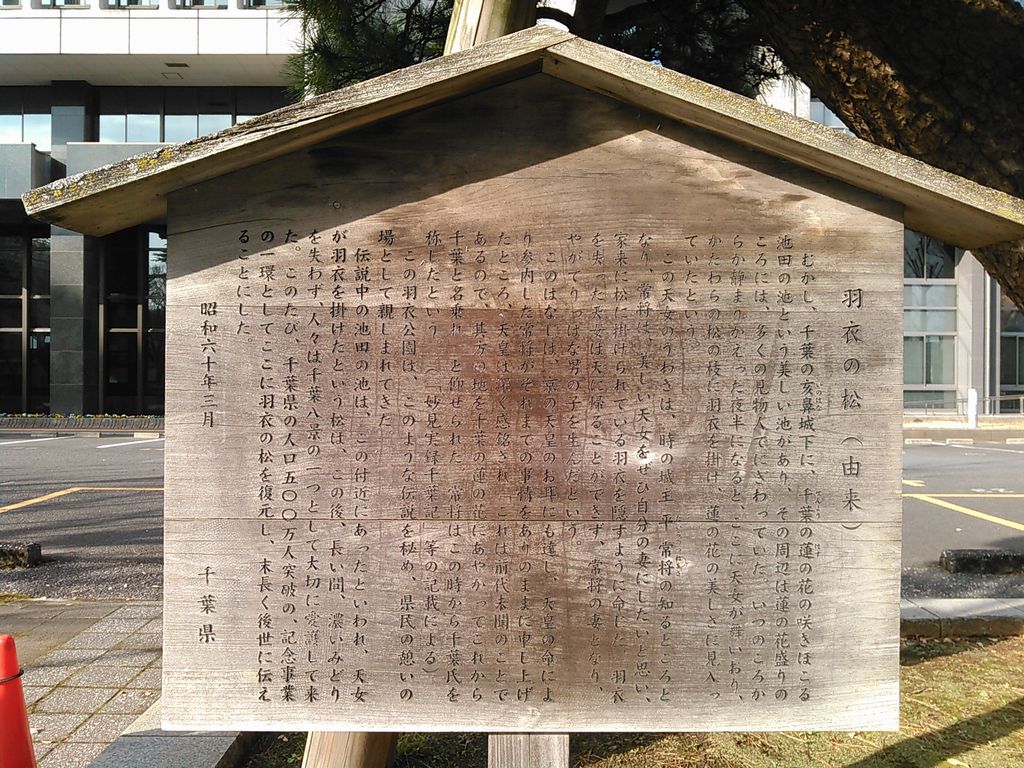 羽衣の松（由来）
むかし、千葉の亥鼻城下に、千葉の蓮の花の咲きほこる
池田の池という美しい池があり、その周辺は蓮の花盛りの
ころには、多くの見物人でにぎわっていた。いつのころか
らか静まりかえった夜半になると、ここに天女が舞いおり、
かたわらの松の枝に羽衣を掛け、蓮の花の美しさに見入っ
ていたという。
この天女のうわさは、時の城主平常将の知るところと
なり、常将は、美しい天女をぜひ自分の妻にしたいと思い、
家来に松に掛けられている羽衣を隠すように命じた。羽衣
を失った天女は天に帰ることができず、常将の妻となり、
やがてりっぱな男の子を生んだという。
このはなしは、京の天皇のお耳にも達し、天皇の命によ
り参内した常将がそれまでの事情をありのままに申し上げ
たところ、天皇は深く感銘され、「これは前代未聞のことで
あるので、其方の地を千葉の蓮の花にあやかってこれから
千葉と名乗れ」と仰せられた。常将はこの時から千葉氏を
称したという。（「妙見実録千葉記」等の記載による）
この羽衣公園は、このような伝説を秘め、県民の憩いの
場として親しまれてきた。
伝説中の池田の池は、この付近にあったといわれ、天女
が羽衣を掛けたという松は、この後、長い間、濃いみどり
を失わず、人々は千葉八景の一つとして大切に愛護して来
た。このたび、千葉県の人口五〇〇万人突破の、記念事業
の一環としてここに羽衣の松を復元し、末長く後世に伝え
ることにした。
昭和六十年三月
千葉県